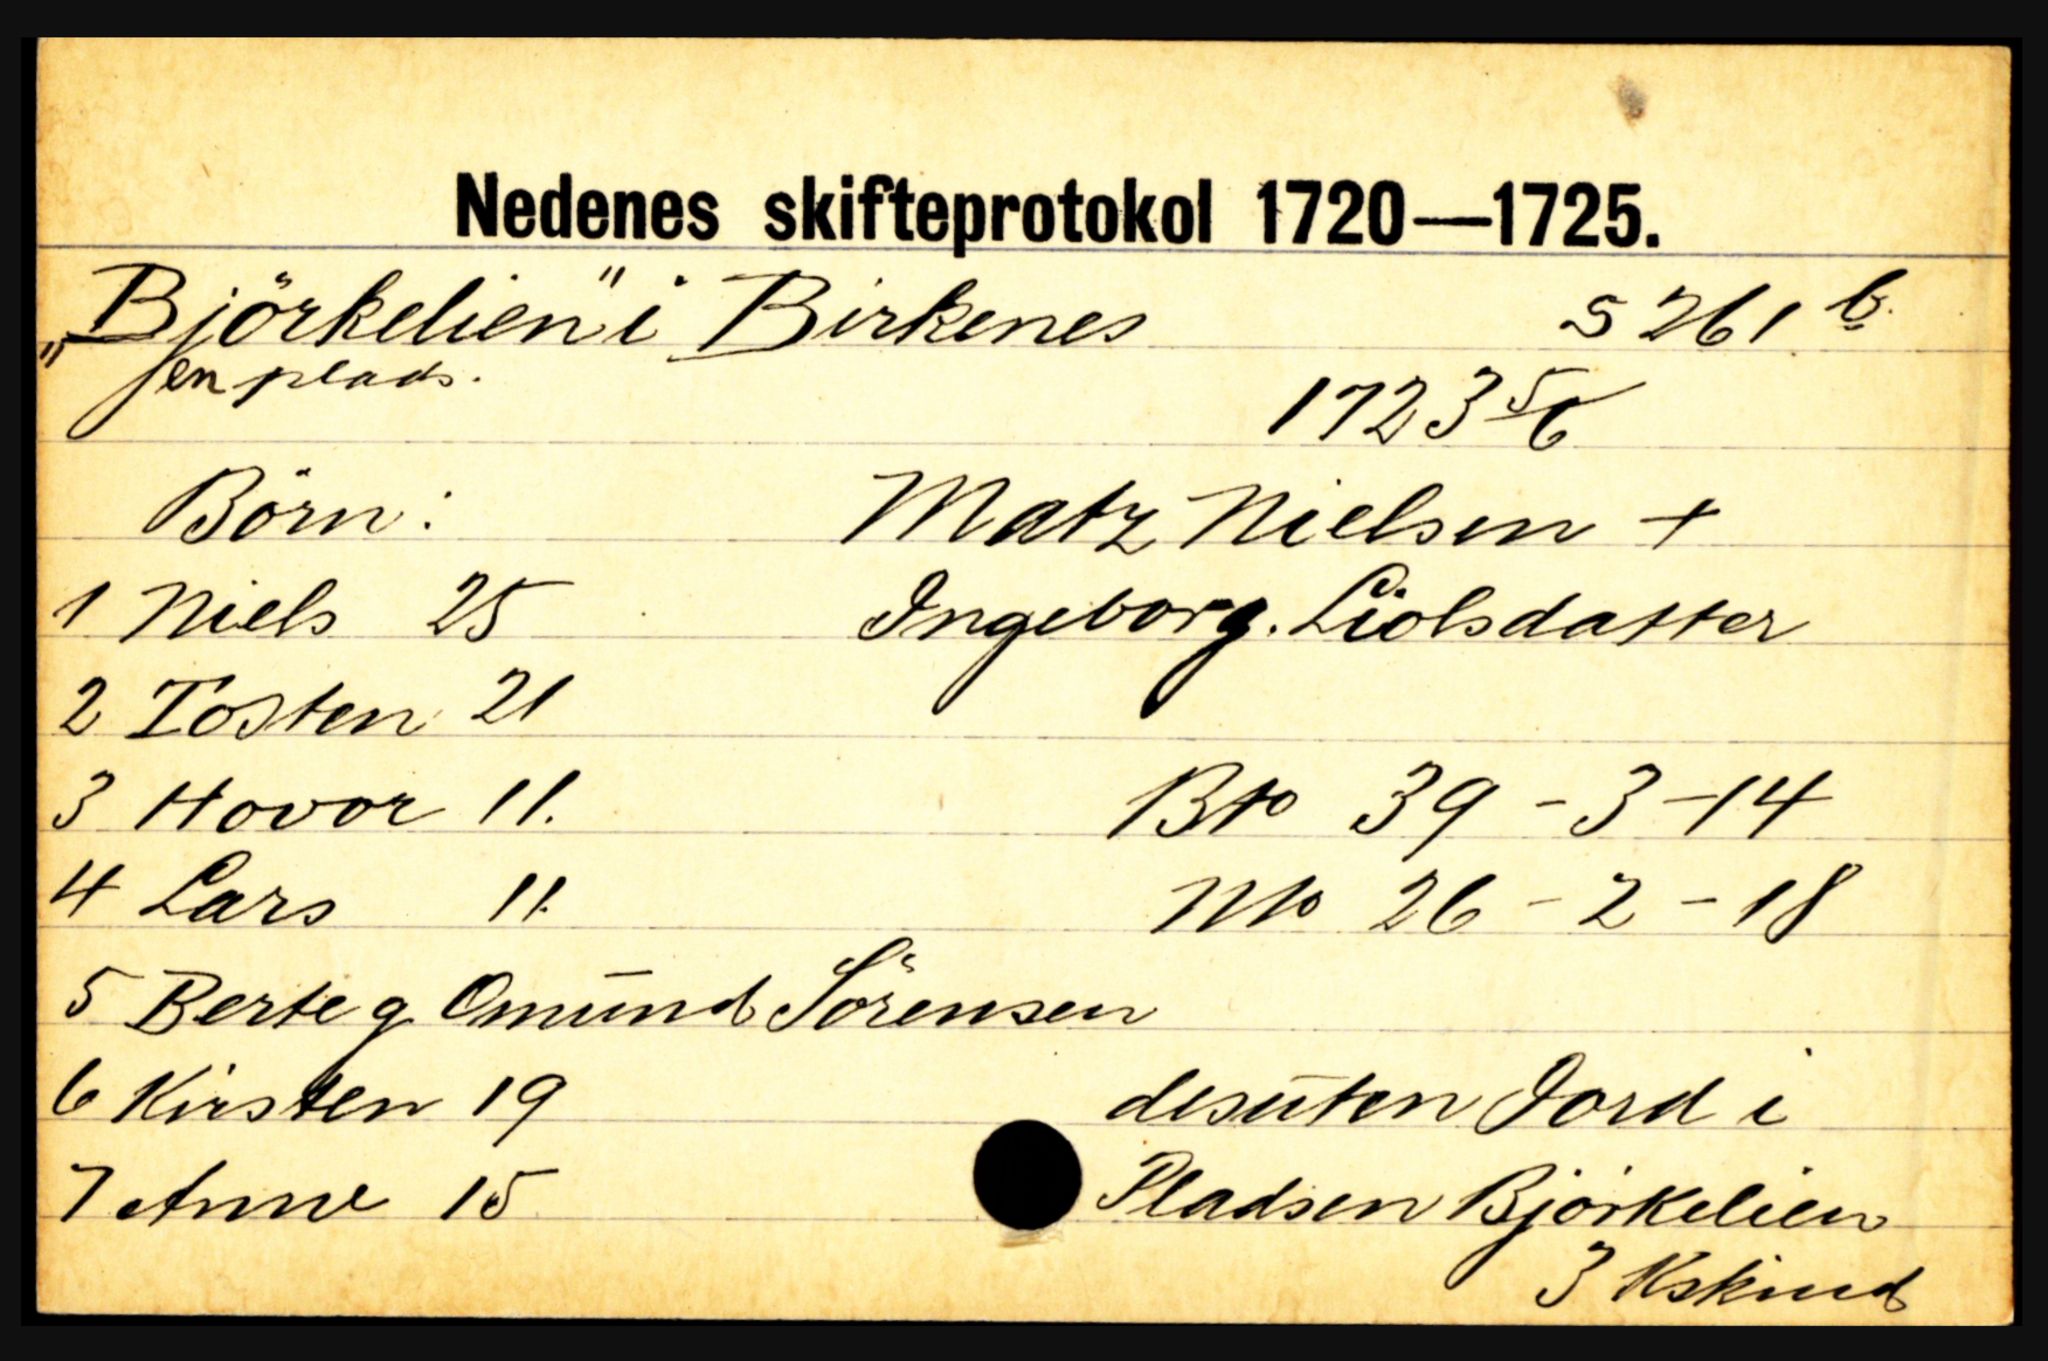 Nedenes skifteprotokol 1720—1725.
"Björkelien" i Birkenes S 261 b.
en plads. 1723 5/6
Börn: Matz Nielsen +
1 Niels 25 Ingeborg. Liolsdatter
2 Tosten 21
3 Hovor 11. Bto 39 - 3 - 14
4 Lars 11. Nto 26 - 2 - 18
5 Berte g. Omund Sörensen
6 Kirsten 19 desuten Jord i
7 Anne 15 Pladsen Björkelien
3 Kskind